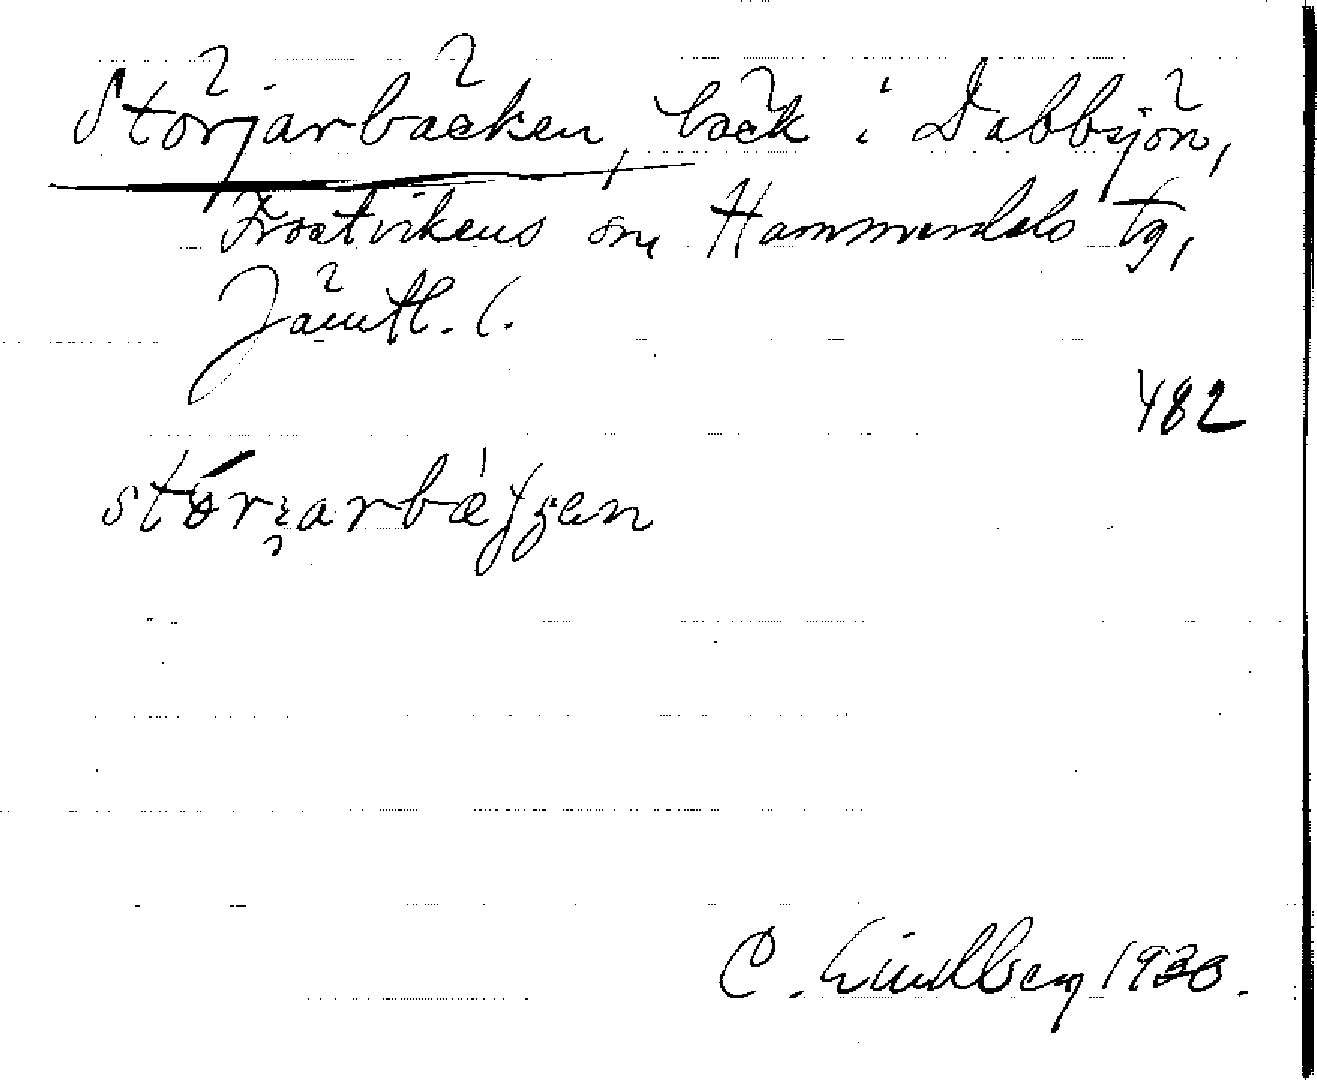 Störjärbäcken, bäck i Dabbsjön,
Frostvikens sn, Hammerdals tg,
Jämtl. l.
482
C. Lindberg 1930.